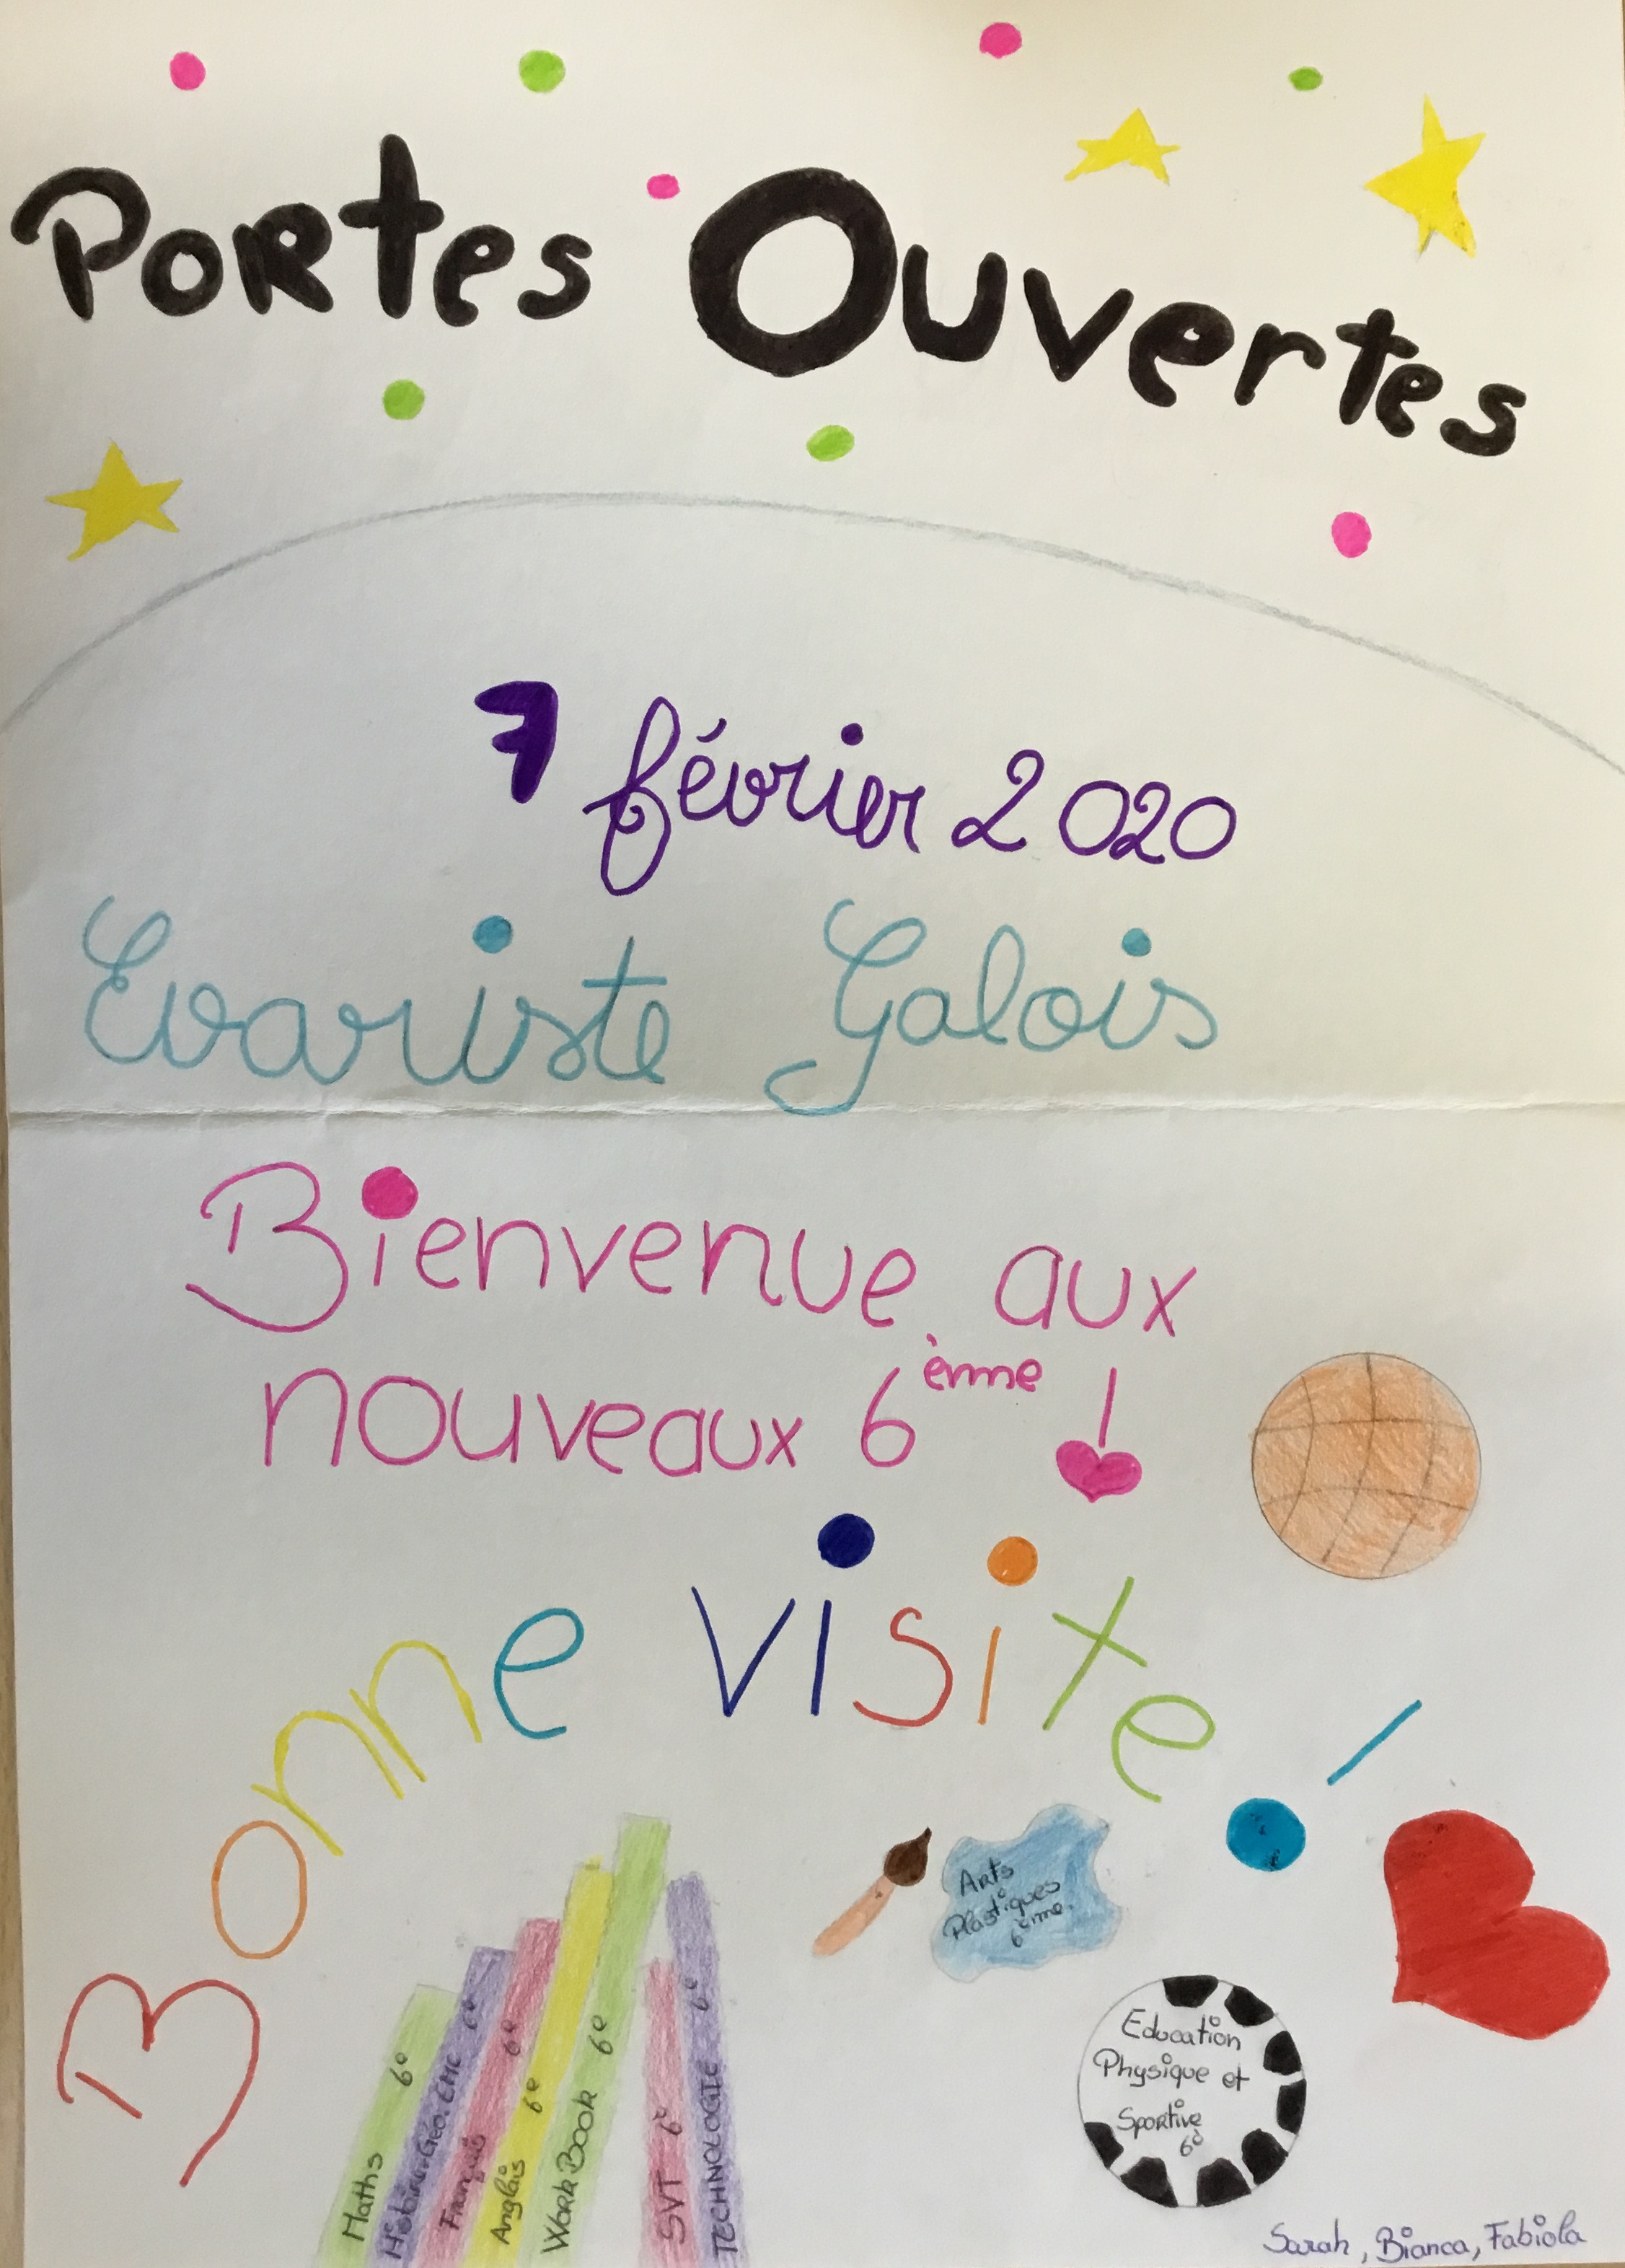 Portes Ouvertes
7 février 2020
Evariste Galois
Bienvenue aux
nouveaux 6ème !
Bonne visite !
Arts
Plastiques
6ème.
Maths 6e
Histoire-Géo. EMC 6e
Français 6e
Anglais 6e
Work Book 6e
SVT 6e
TECHNOLOGIE 6e
Education
Physique et
Sportive
6e
Sarah, Bianca, Fabiola